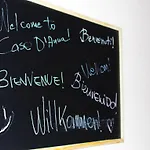 Welcome to
Casa D'Anna! Benvenuti!
Welkom!
BIENVENUE! BIENVENIDO!
Willkommen